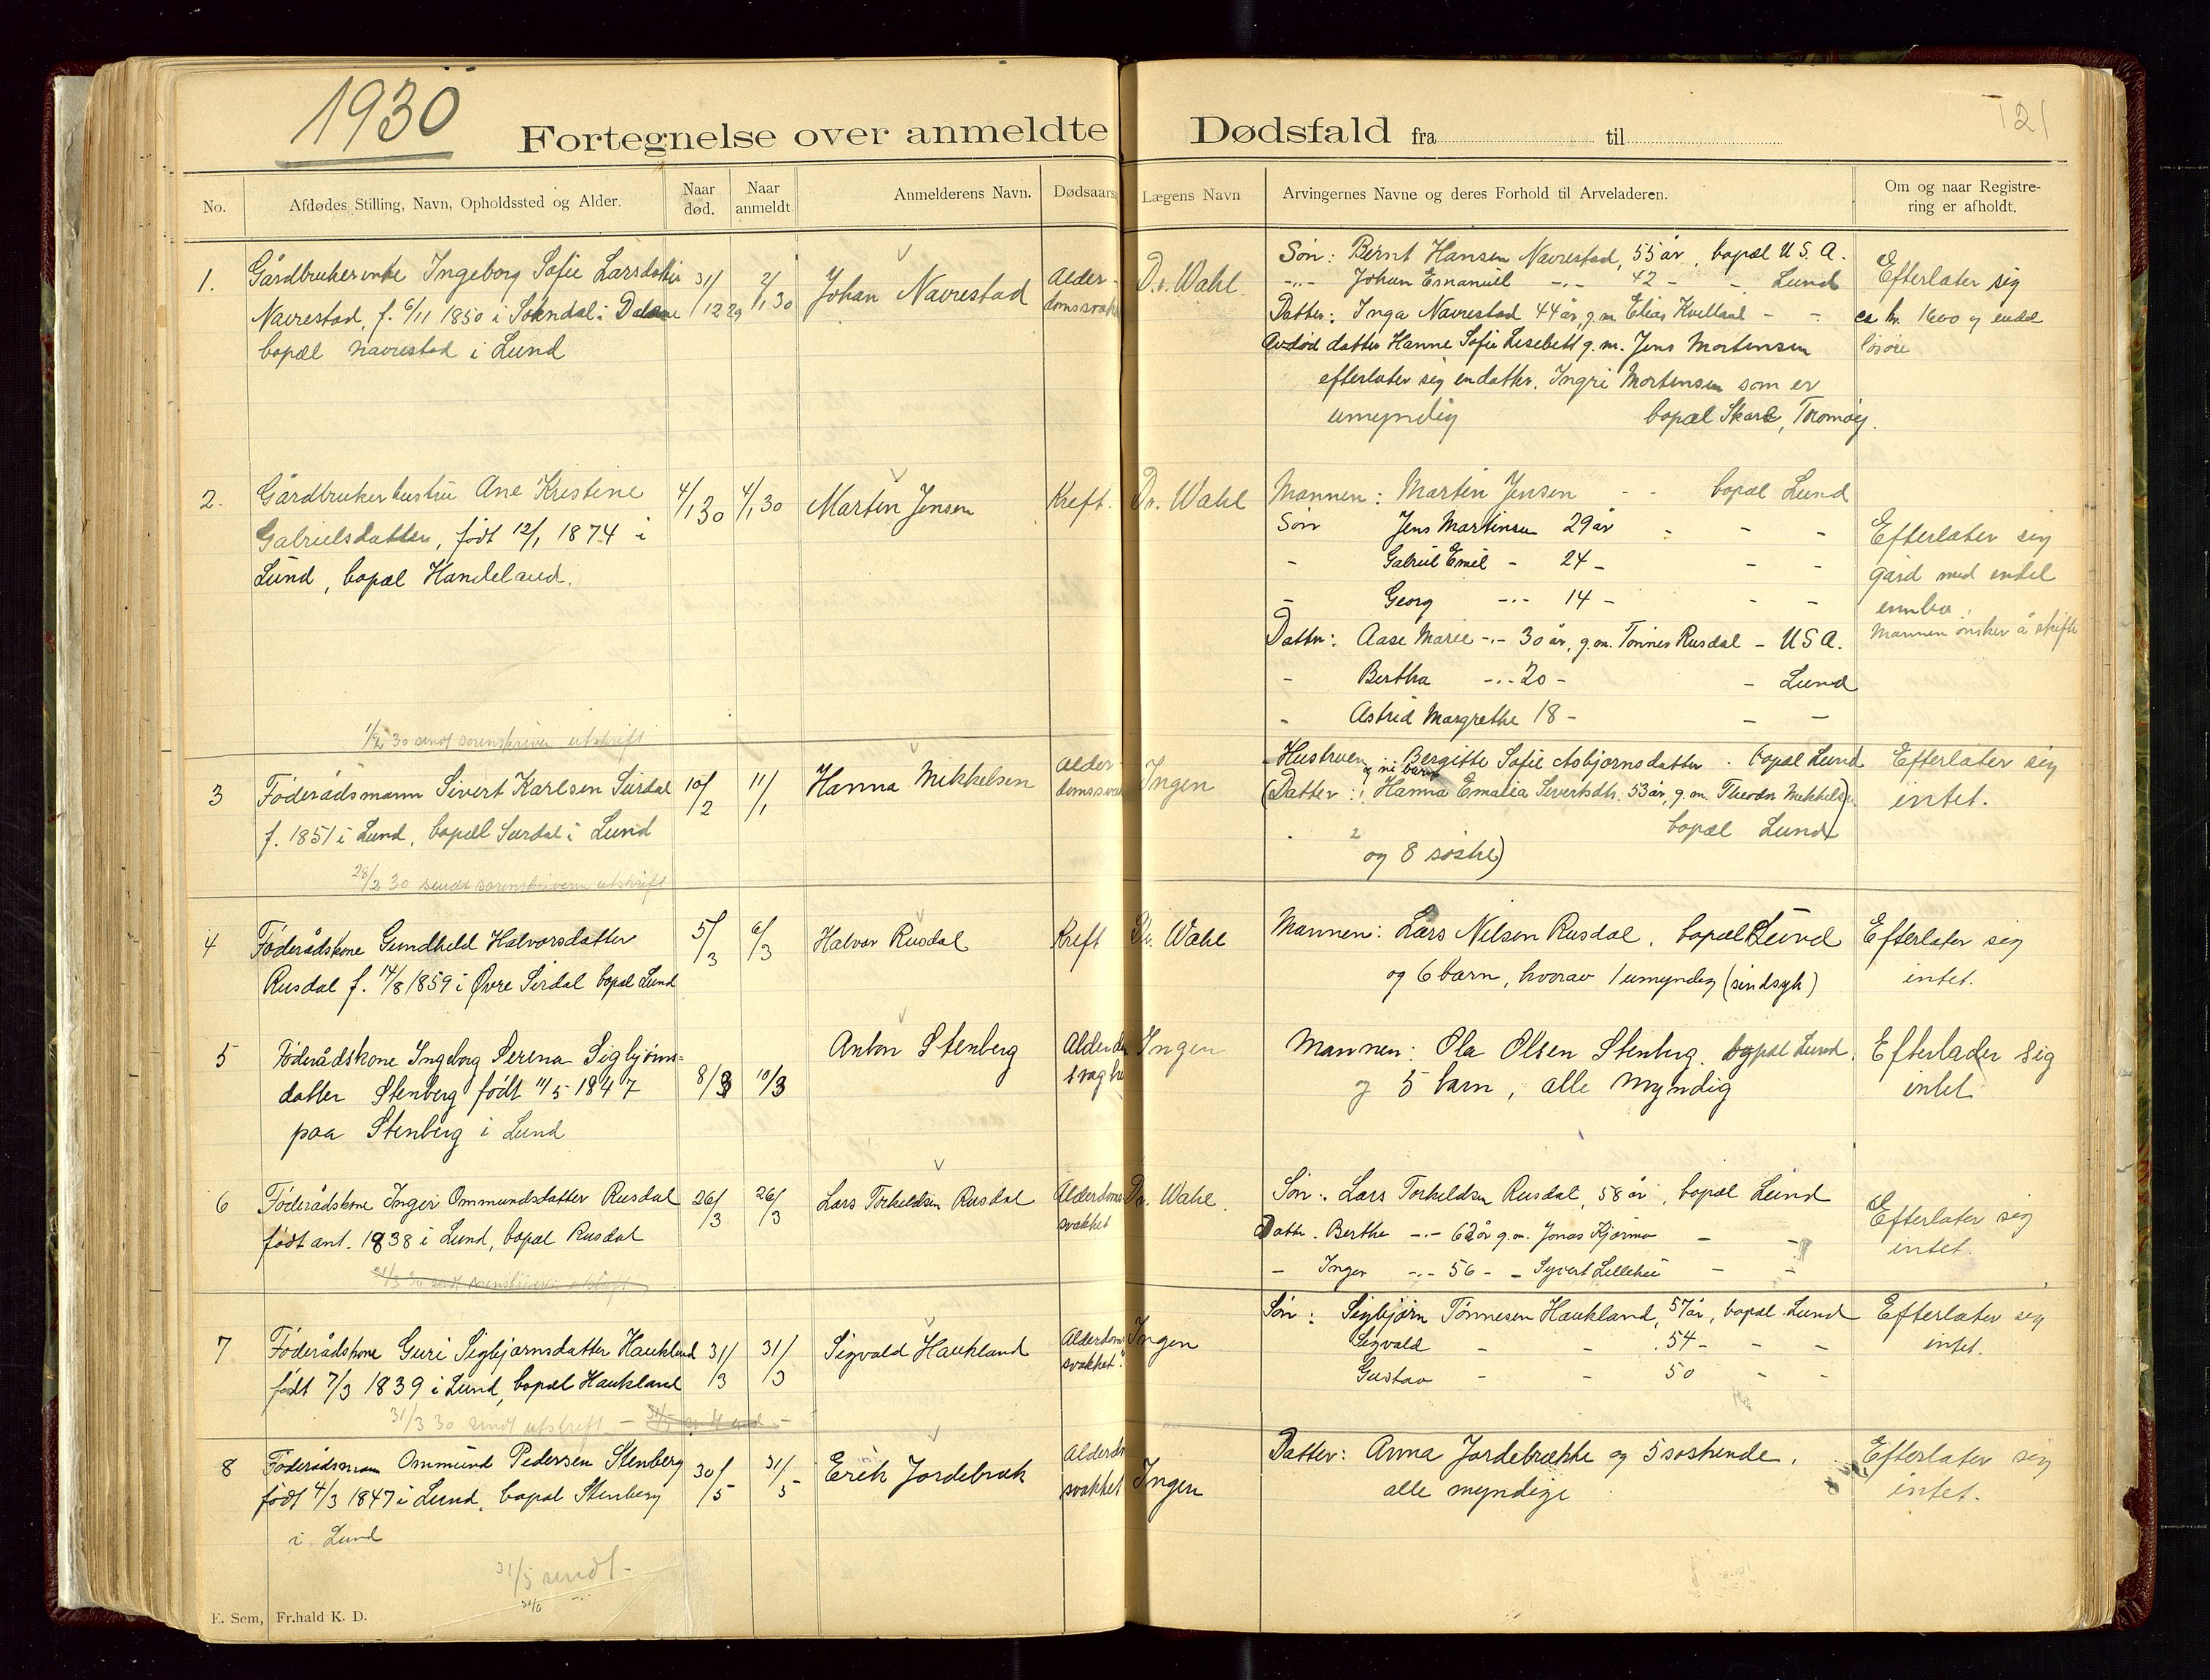 1930
121
Fortegnelse over anmeldte Dødsfald fra til
No.
Afdødes Stilling, Navn, Opholdssted og Alder.
Naar død.
Naar anmeldt
Anmelderens Navn.
Dødsaars
Lægens Navn
Arvingernes Navne og deres Forhold til Arveladeren.
Om og naar Registre-
ring er afholdt.
1.
Gårdbrukerenke Ingeborg Sofie Larsdatter
Navrestad, f. 6/11 1850 i Sokndal i Dalane
bopæl Navrestad i Lund
31/12 29
2/1 30
Johan Navrestad
Alder-
domssvakh
Dr. Wahl.
Søn: Bernt Hansen Navrestad, 55 år, bopæl U S A.
-"- Johan Emanuel -"- 42 - - Lund
Datter: Inga Navrestad 44 år, g.m. Elias Kvelland - -
Avdød datter Hanne Sofie Lisebett g.m. Jens Mortensen
efterlater sig en datter. Ingri Mortensen som er
umyndig bopæl Skare, Tromøy.
Efterlater sig
ca kr. 1600 og endel
løsøre
2.
Gårdbrukerhustru Ane Kristine
Gabrielsdatter, født 12/1 1874 i
Lund, bopæl Handeland.
4/1 30
4/1 30
Martin Jensen
Kreft.
Dr. Wahl
Mannen: Martin Jensen - - bopæl Lund
Søn Jens Martinsen 29 år - - -
- Gabriel Emil - 24 - - -
- Georg -"- 14 - - -
Datter: Aase Marie -"- 30 år, g.m. Tønnes Rusdal - U S A.
- Bertha -"- 20 - - Lund
- Astrid Margrethe 18 - - -
Efterlater sig
gård med endel
innbo.
Mannen ønsker å skifte
1/2 30 sendt sorenskriveren utskrift
3
Føderådsmann Sivert Karlsen Surdal
f. 1851 i Lund, bopæl Surdal i Lund
10/2
11/1
Hanna Mikkelsen
Alder-
domssvak
Ingen
Hustruen Bergitte Sofie Asbjørnsdatter. bopæl Lund
og ni barn
(Datter: Hanna Emalia Sivertsdtr. 53 år, g.m. Theodor Mikkelsen
bopæl Lund)
og 8 søstre)
Efterlater sig
intet.
28/2 30 sendt sorenskriveren utskrift
4
Føderådskone Gundhild Halvorsdatter
Rusdal f. 14/8 1859 i Øvre Sirdal bopæl Lund
5/3
6/3
Halvor Rusdal
Kreft
Dr. Wahl
Mannen: Lars Nilsen Rusdal, bopæl Lund
og 6 barn, hvorav 1 umyndig (sindsyk)
Efterlater sig
intet.
5
Føderådskone Ingeborg Serena Sigbjørns-
datter Stenberg født 11/5 1847
paa Stenberg i Lund
8/3
10/3
Anton Stenberg
Alderdo
svaghe
Ingen
Mannen: Ola Olsen Stenberg. bopæl Lund.
og 5 barn, alle myndig
Efterlader sig
intet
6
Føderådskone Inger Ommundsdatter Rusdal
født ant. 1838 i Lund, bopæl Rusdal
26/3
26/3
Lars Torkildsen Rusdal
Alderdoms-
svakhet
Dr. Wahl.
Søn: Lars Torkildsen Rusdal, 58 år, bopæl Lund
Datter. Berthe -"- 62 år g.m. Jonas Kjørmo - -
- Inger -"- 56 - - Syvert Lillehei - -
Efterlater sig
intet.
31/3 30 sendt sorenskriveren utskrift
7
Føderådskone Guri Sigbjørnsdatter Haukland
født 7/3 1839 i Lund, bopæl Haukland
31/3
31/3
Sigvald Haukland
Alderdoms-
svakhet.
Ingen
Søn: Sigbjørn Tønnesen Haukland, 57 år, bopæl Lund
Sigvald - - 54 - - -
Gustav - - 50 - -
Efterlater sig
intet.
31/3 30 sendt utskrift -
8
Føderådsmann Ommund Pedersen Stenberg
født 4/3 1847 i Lund, bopæl Stenberg
i Lund
30/5
31/5
Erik Jordebræk
Alderdo
svakhet
Ingen
Datter: Anna Jordebrække og 5 søskende.
alle myndige
Efterlater sig
intet.
31/5 sendt -
E. Sem, Fr.hald K. D.